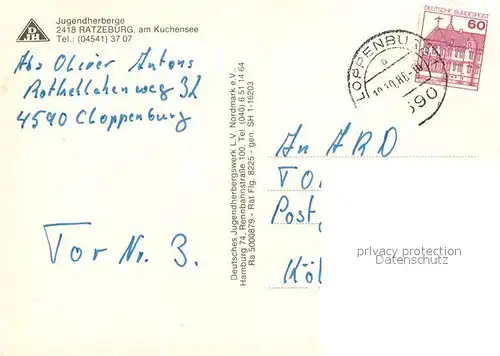 Jugendherberge
2418 RATZEBURG, am Küchensee
Tel.: (04541) 37 07
DJH
Abs Oliver Antons
Rothellahenweg 32
4590 Cloppenburg
Tor Nr. 3.
Deutsches Jugendherbergswerk L.V. Nordmark e.V.,
Hamburg 74, Rennbahnstraße 100, Tel. (040) 6 51 14 64
Ra 5000879 - Rat Flg. 8225 - gen. SH 1-16203
DEUTSCHE BUNDESPOST
60
An ARD
TO.
Post,
Köl
privacy protection
Datenschutz